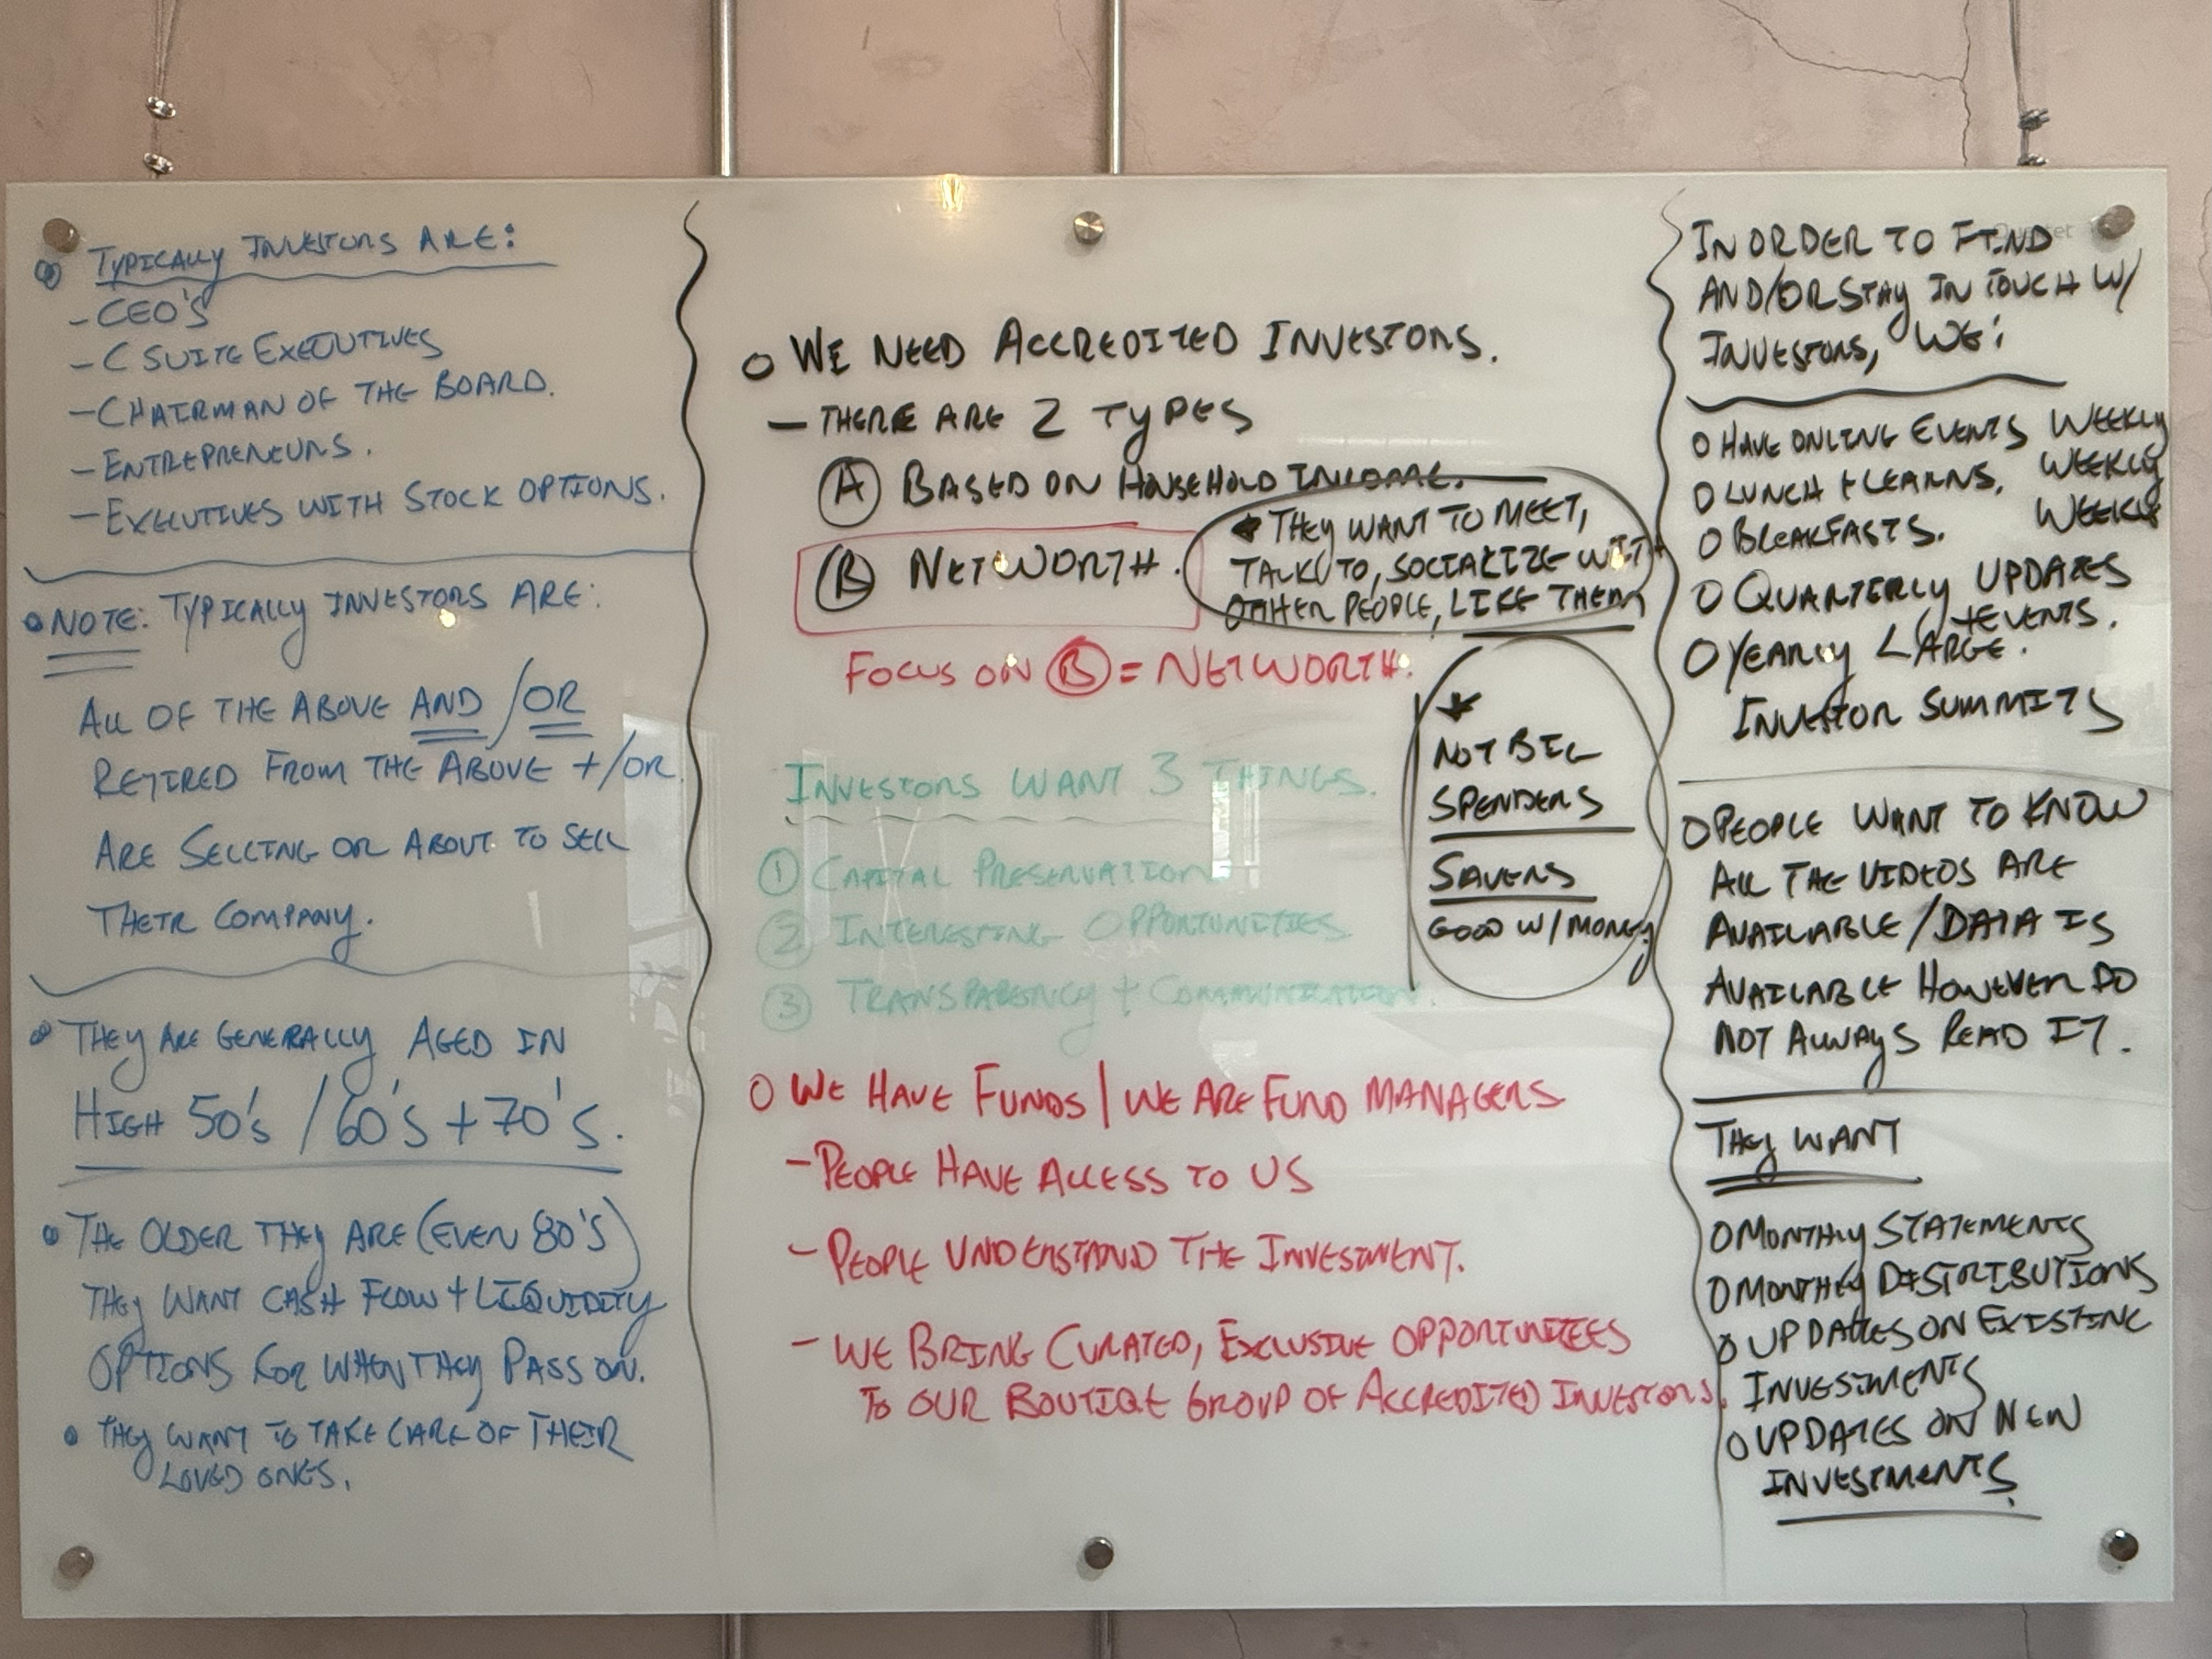 Typically Investors Are:
- CEO's
- C Suite Executives
- Chairman of the Board.
- Entrepreneurs.
- Executives with Stock Options.
Note: Typically Investors Are:
All of the above AND/OR
Retired from the above +/or
Are selling or about to sell
their company.
They are generally aged in
High 50's / 60's + 70's.
The older they are (even 80's)
they want cash flow + liquidity
options for when they pass on.
They want to take care of their
loved ones.
We need Accredited Investors.
- There are 2 types
A Based on Household Income.
B Networth.
They want to meet,
talk to, socialize with
other people, like them
Focus on B = Networth.
Not big
spenders
Savers
Good w/ money
Investors want 3 things.
1 Capital Preservation
2 Interesting Opportunities
3 Transparency + Communication.
We have funds | we are fund managers
- People have access to us
- People understand the investment.
- We bring curated, exclusive opportunities
to our boutiqe group of Accredited Investors.
In order to find
and/or stay in touch w/
investors, we:
Have online events weekly
Lunch + learns, weekly
Breakfasts. weekly
Quarterly updates
+ events.
Yearly large.
Investor summits
People want to know
all the videos are
available/data is
available however do
not always read it.
They want
Monthly statements
Monthly distributions
Updates on existing
investments
Updates on new
investments.